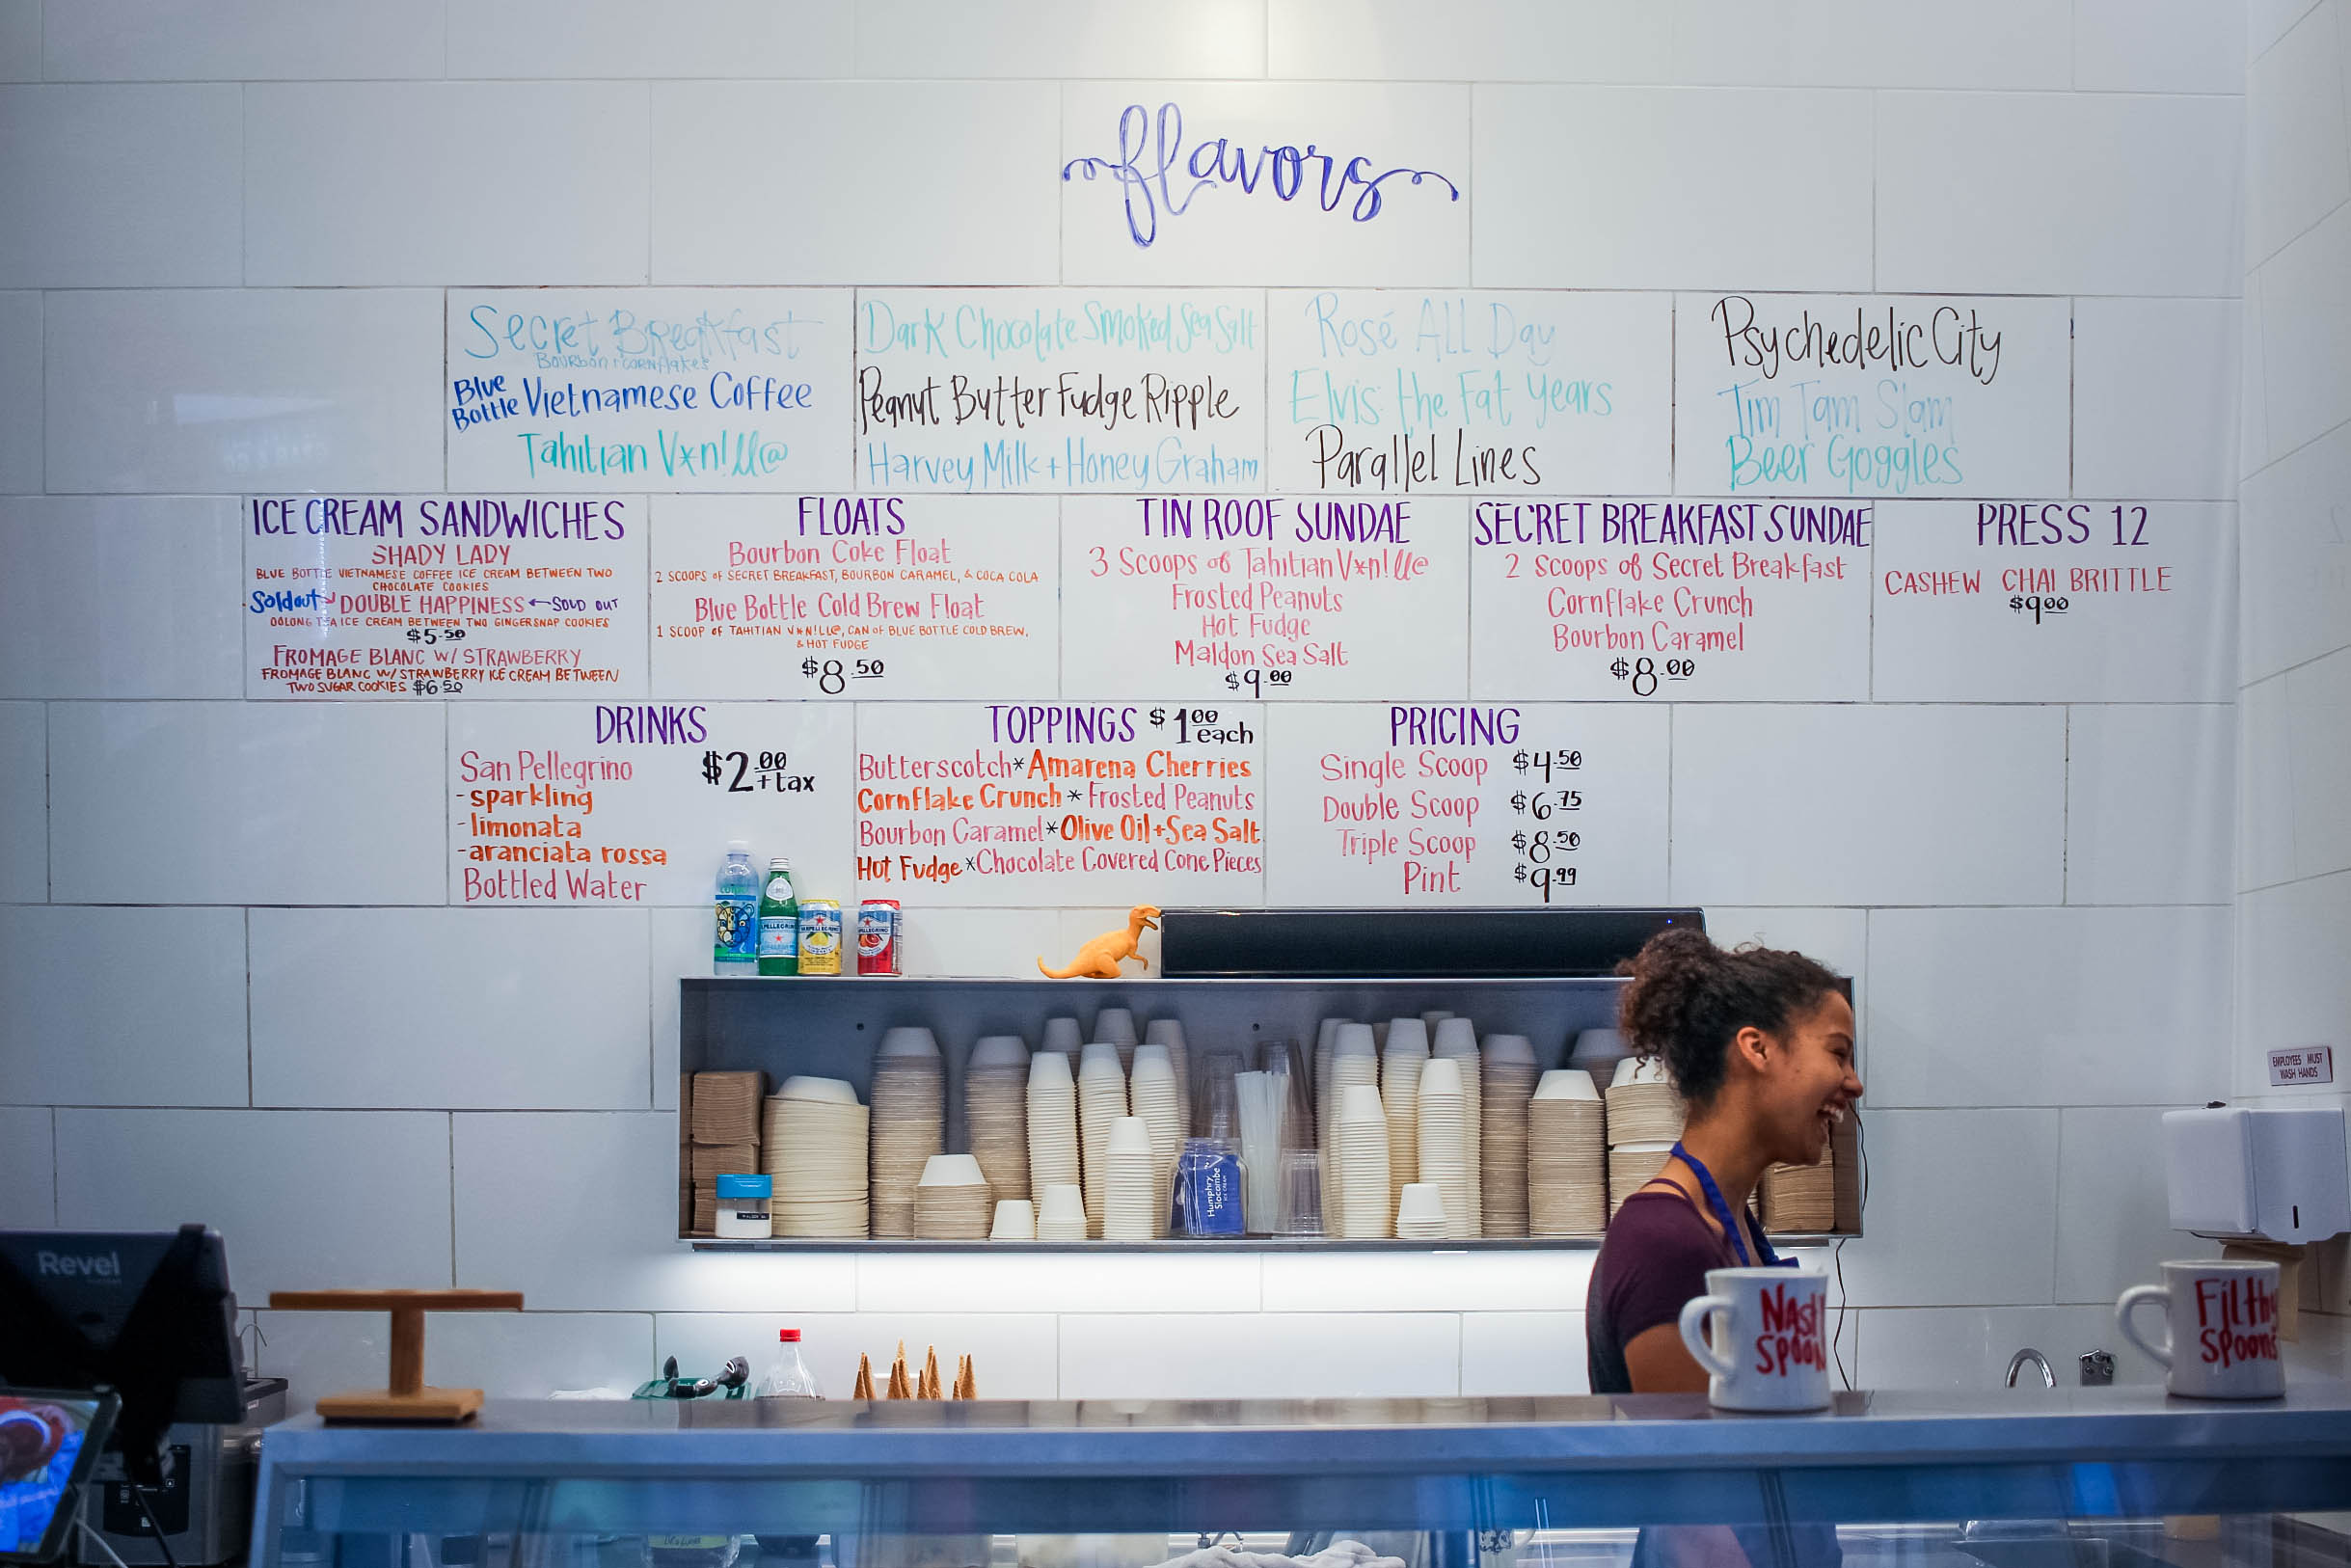 flavors
Secret Breakfast
Bourbon + cornflakes
Blue Bottle Vietnamese Coffee
Tahitian V*n!ll@
Dark Chocolate Smoked Sea Salt
Peanut Butter Fudge Ripple
Harvey Milk + Honey Graham
Rosé All Day
Elvis: the Fat Years
Parallel Lines
Psychedelic City
Tim Tam Slam
Beer Goggles
ICE CREAM SANDWICHES
SHADY LADY
BLUE BOTTLE VIETNAMESE COFFEE ICE CREAM BETWEEN TWO
CHOCOLATE COOKIES
Sold out DOUBLE HAPPINESS ← SOLD OUT
OOLONG TEA ICE CREAM BETWEEN TWO GINGERSNAP COOKIES
$5.50
FROMAGE BLANC W/ STRAWBERRY
FROMAGE BLANC W/ STRAWBERRY ICE CREAM BETWEEN
TWO SUGAR COOKIES $6.50
FLOATS
Bourbon Coke Float
2 SCOOPS of SECRET BREAKFAST, BOURBON CARAMEL, & COCA COLA
Blue Bottle Cold Brew Float
1 SCOOP of TAHITIAN V*N!LL@, CAN of BLUE BOTTLE COLD BREW,
& HOT FUDGE
$8.50
TIN ROOF SUNDAE
3 Scoops of Tahitian V*n!ll@
Frosted Peanuts
Hot Fudge
Maldon Sea Salt
$9.00
SECRET BREAKFAST SUNDAE
2 Scoops of Secret Breakfast
Cornflake Crunch
Bourbon Caramel
$8.00
PRESS 12
CASHEW CHAI BRITTLE
$9.00
DRINKS
San Pellegrino $2.00 + tax
- sparkling
- limonata
- aranciata rossa
Bottled Water
TOPPINGS $1.00 each
Butterscotch * Amarena Cherries
Cornflake Crunch * Frosted Peanuts
Bourbon Caramel * Olive Oil + Sea Salt
Hot Fudge * Chocolate Covered Cone Pieces
PRICING
Single Scoop $4.50
Double Scoop $6.75
Triple Scoop $8.50
Pint $9.99
Humphry
Slocombe
ICE CREAM
EMPLOYEES MUST
WASH HANDS
Revel
Filthy
Spoons